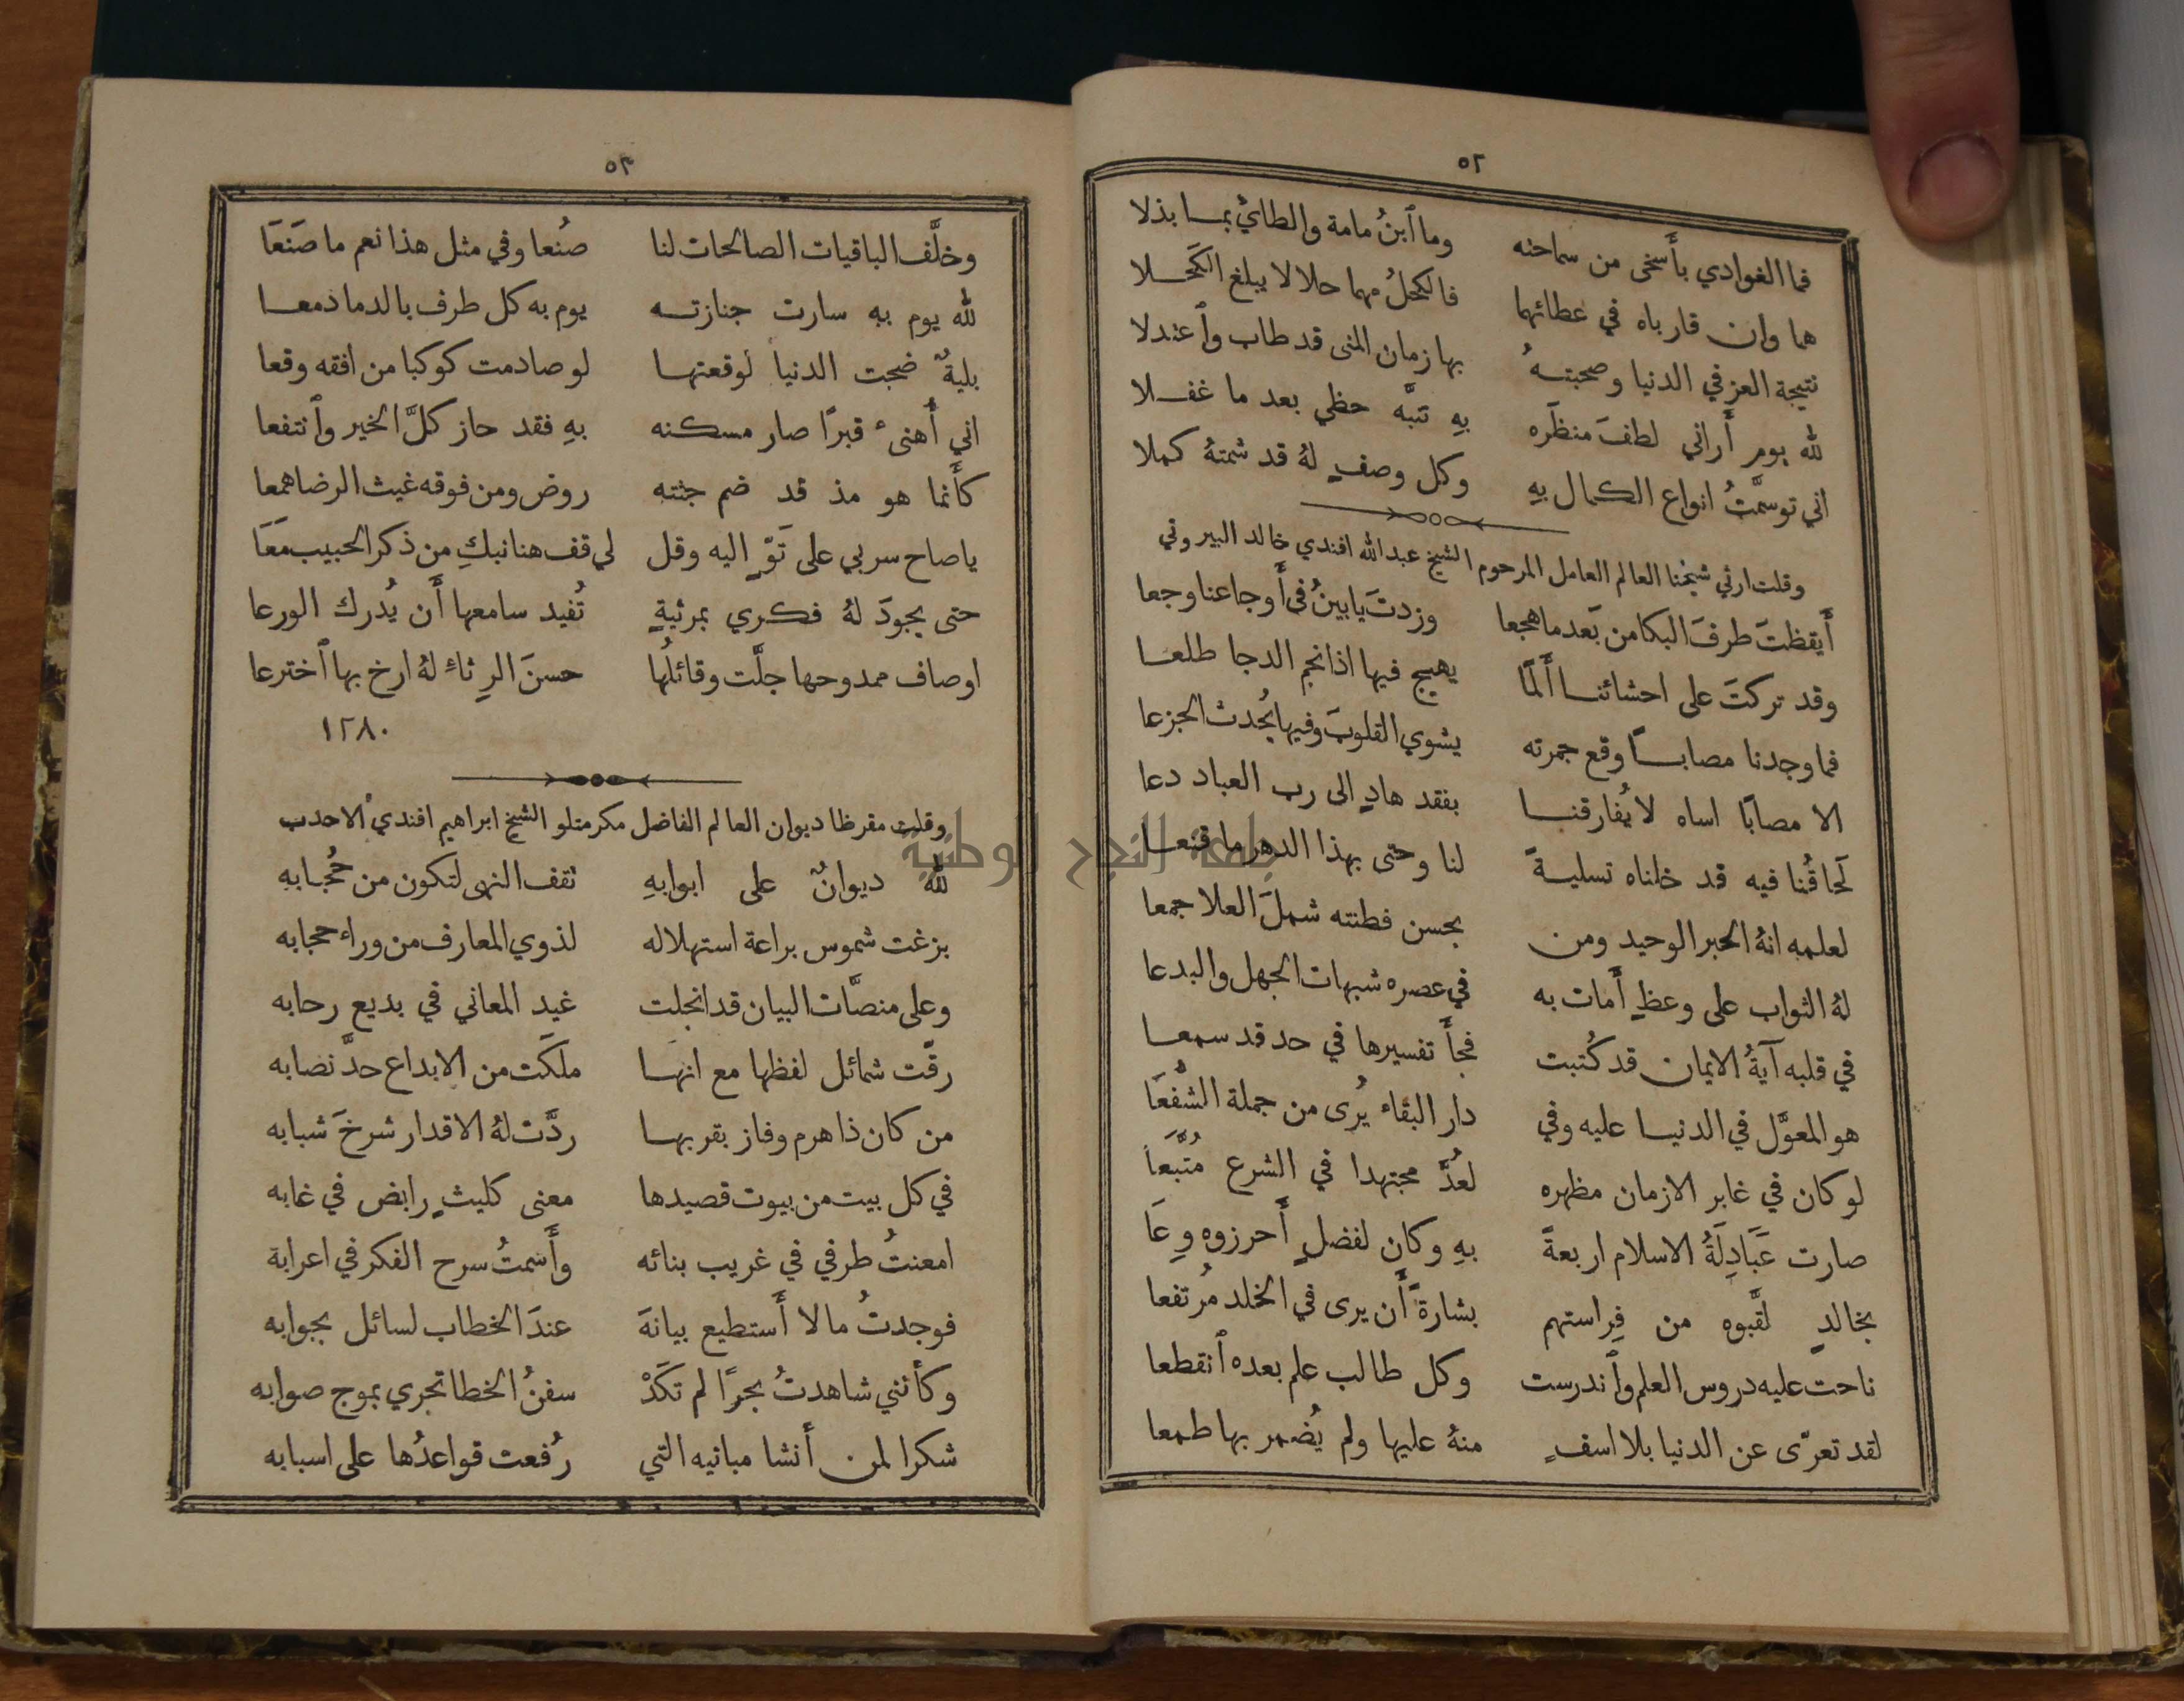 ٥٢
فما الغوادي بأَسخى من سماحته وما ٱبنُ مامة والطائيْ بما بذلا
هما وان قارباه في عطائهما فالكحلُ مهما حلا لا يبلغ الكَحَلا
نتيجة العز في الدنيا وصحبتهُ بها زمان المنى قد طاب وٱعتدلا
لله يوم أَراني لطفَ منظَره بهِ تنبَّه حظي بعد ما غفلا
اني توسمَّتُ انواع الكمال بهِ وكل وصفٍ لهُ قد شمتهُ كملا
وقلت ارثي شيخنا العالم العامل المرحوم الشيخ عبدالله افندي خالد البيروتي
أَيقظتَ طرفَ البكا من بَعد ما هجعا وزدتَ يا بينُ في أَوجاعنا وجعا
وقد تركتَ على احشائنا أَلمًا يهيج فيها اذا نجم الدجا طلعا
فما وجدنا مصاباً وقع جمرته يشوي القلوبَ وفيها يُحدث الجزعا
الا مصابًا اساه لا يُفارقنا بفقد هادٍ الى رب العباد دعا
لَحاقُنا فيه قد خلناه تسليةً لنا وحتى بهذا الدهر ما قنعا
لعلمه انهُ الحبر الوحيد ومن بحسن فطنته شملَ العلا جمعا
لهُ الثواب على وعظٍ أَمات به في عصره شبهات الجهل والبدعا
في قلبه آيةُ الايمان قد كُتبت فجأَ تفسيرها في حد قد سمعا
هو المعوَّل في الدنيا عليه وفي دار البقاء يُرى من جملة الشُّفَعَا
لو كان في غابر الازمان مظهره لعُدَّ مجتهدا في الشرع مُتَّبَعَا
صارت عَبَادِلَةُ الاسلام اربعةً بهِ وكان لفضلٍ أَحرزوه وِعَا
بخالدٍ لقَّبوه من فِراستهم بشارةً أَن يرى في الخلد مُرتفعا
ناحت عليه دروس العلم وٱندرست وكل طالب علم بعده ٱنقطعا
لقد تعرّى عن الدنيا بلا اسفٍ منهُ عليها ولم يُضمر بها طمعا
٥٣
وخلَّف الباقيات الصالحات لنا صُنعا وفي مثل هذا نعم ما صَنَعَا
لله يوم به سارت جنازته يوم به كل طرف بالدما دمعا
بليةٌ ضجت الدنيا لوقعتها لو صادمت كوكبا من افقه وقعا
اني أُهنىء قبرًا صار مسكنه بهِ فقد حاز كلَّ الخير وٱنتفعا
كأَنما هو مذ قد ضم جثته روض ومن فوقه غيث الرضا همعا
يا صاح سر بي على تَوٍّ اليه وقل لي قف هنا نبكِ من ذكر الحبيب مَعَا
حتى يجودَ لهُ فكري بمرثيةٍ تُفيد سامعها أَن يُدرك الورعا
اوصاف ممدوحها جلَّت وقائلُها حسنَ الرِثاءِ لهُ ارخ بها ٱخترعا
١٢٨٠
وقلت مقرظا ديوان العالم الفاضل مكرمتلو الشيخ ابراهيم افندي الاحدب
لله ديوانٌ على ابوابهِ تقف النهى لتكون من حُجَّابهِ
بزغت شموس براعة استهلاله لذوي المعارف من وراء حجابه
وعلى منصَّات البيان قد انجلت غيد المعاني في بديع رحابه
رقَّت شمائل لفظها مع انها ملكَت من الابداع حدَّ نصابه
من كان ذا هرم وفاز بقربها ردَّت لهُ الاقدار شرخَ شبابه
في كل بيت من بيوت قصيدها معنى كليثٍ رابض في غابه
امعنتُ طرفي في غريب بنائه وأَسمتُ سرح الفكر في اعرابة
فوجدتُ ما لا أَستطيع بيانَهَ عندَ الخطاب لسائل بجوابه
وكأنني شاهدتُ بحرًا لم تكَدْ سفنُ الخطا تجري بموج صوابه
شكرا لمن أَنشا مبانيه التي رُفعت قواعدُها على اسبابه
جامعة النجاح الوطنية